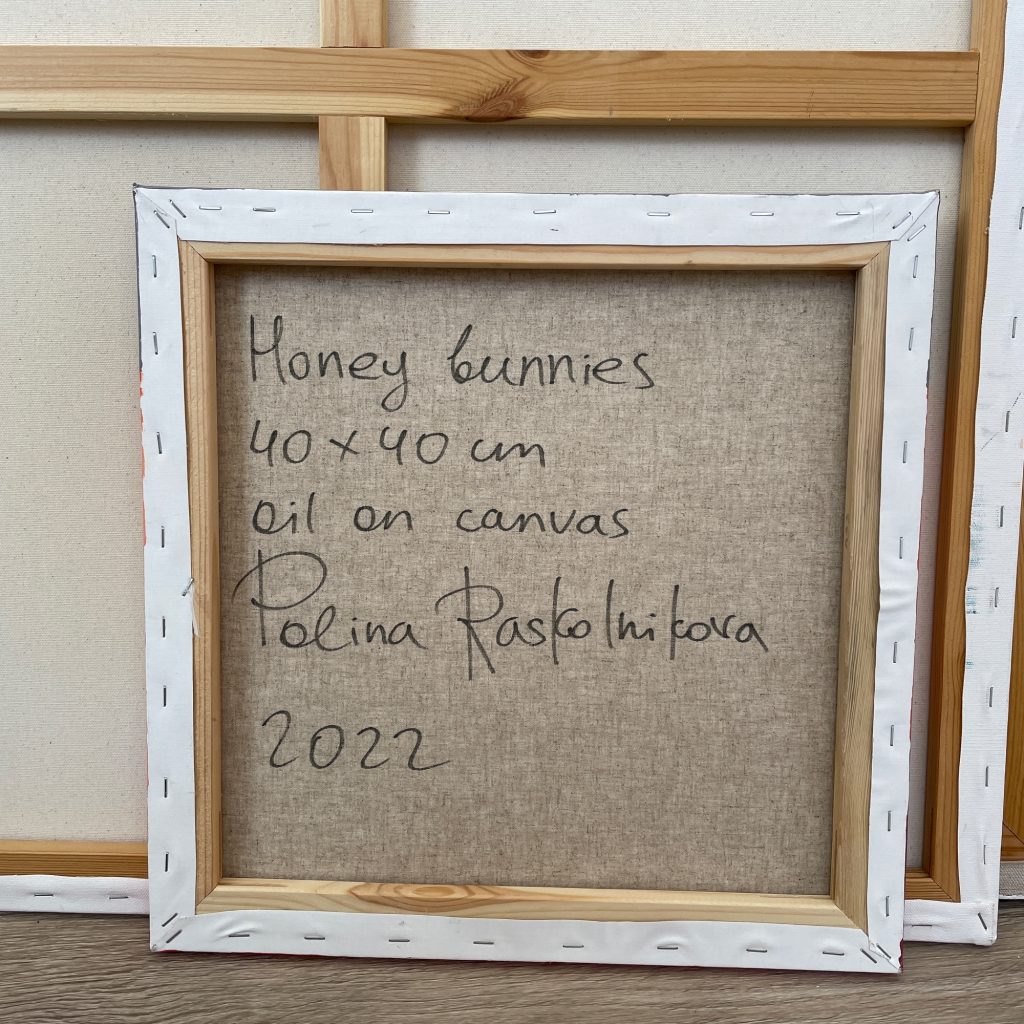 Honey bunnies
40 x 40 cm
oil on canvas
Polina Raskolnikova
2022